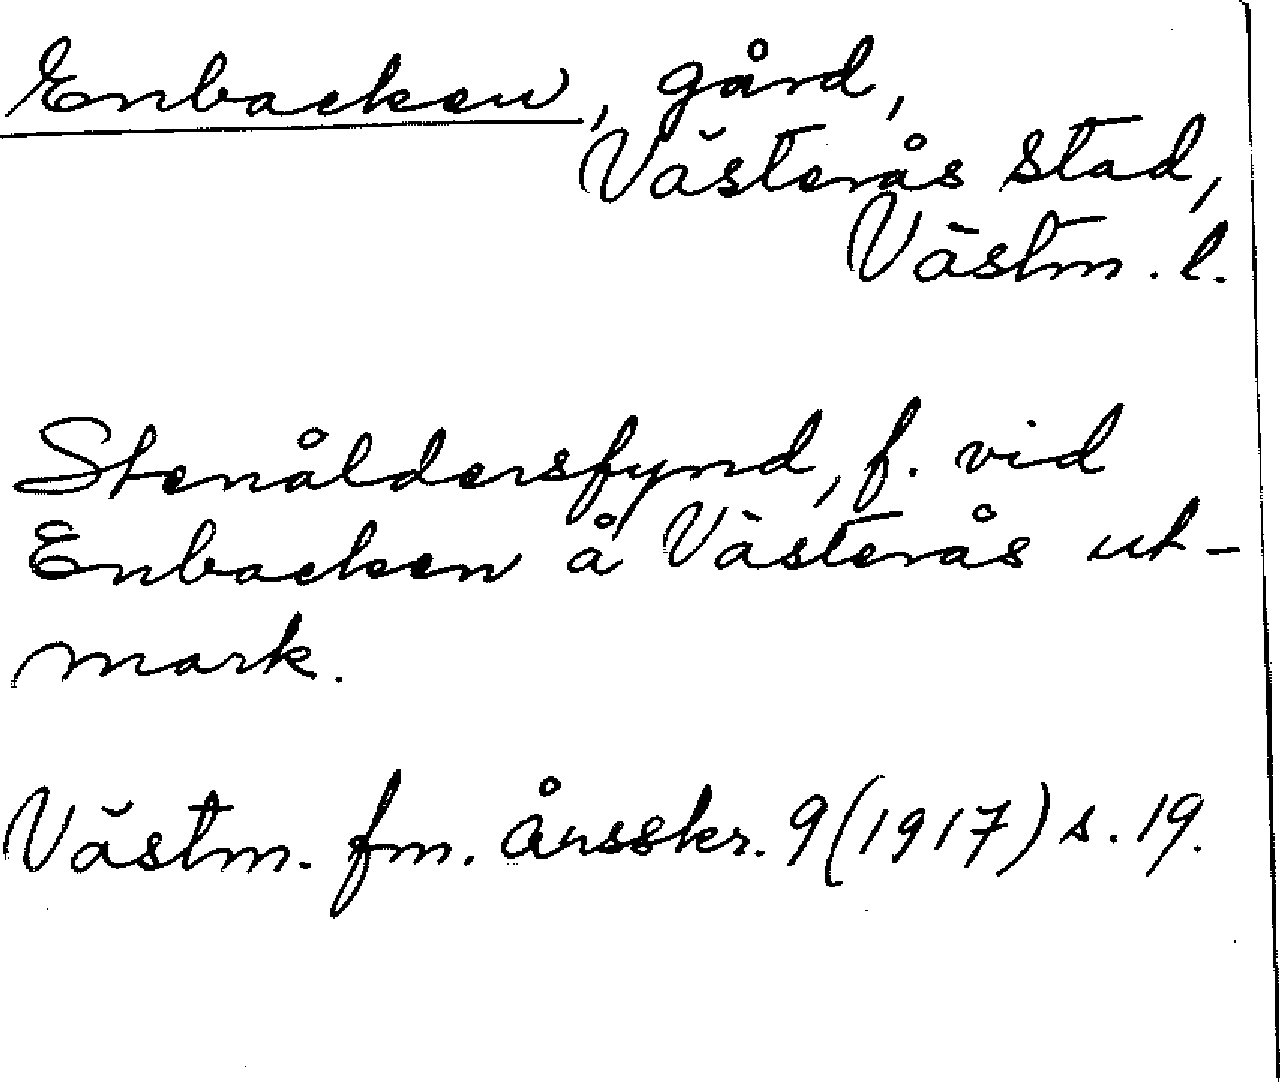 Enbacken, gård,
Västerås stad,
Västm. l.
Stenåldersfynd, f. vid
Enbacken å Västerås ut-
mark.
Västm. fm. årsskr. 9 (1917) s. 19.